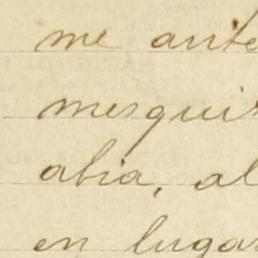 me ante
mesqui
abia, al
en lugar